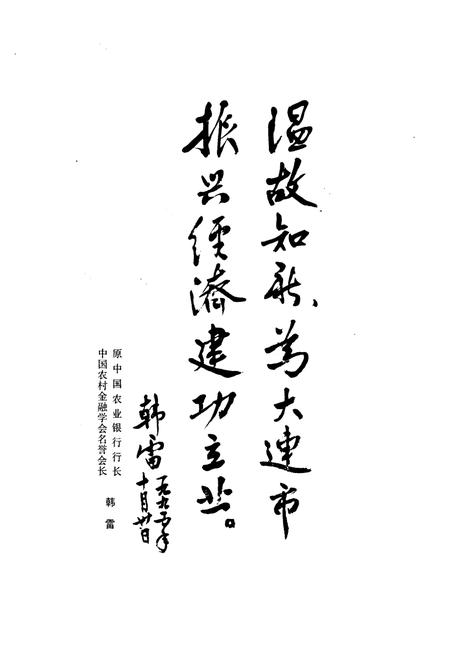 温故知新、为大連市
振兴經濟建功立业。
韩雷
一九九五年
十月卅日
原中国农业银行行长
中国农村金融学会名誉会长 韩雷